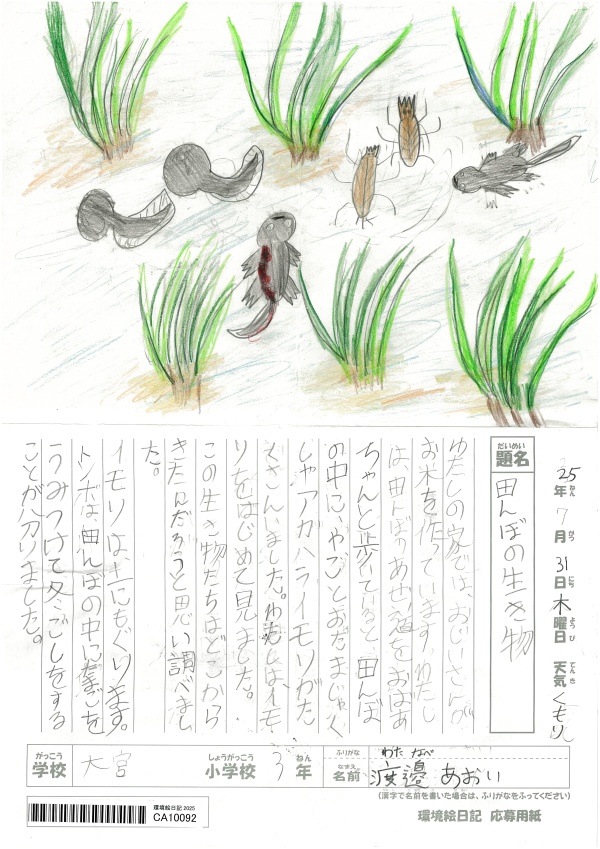 25年ねん 7月がつ 31日にち 木曜日ようび 天気てんき くもり
題名だいめい 田んぼの生き物
わたしの家では、おじいさんが
お米を作っています。わたし
は、田んぼのあぜ道をおばあ
ちゃんと歩いていると、田んぼ
の中に、やごとおたまじゃく
しやアカハライモリがた
くさんいました。わたしはイモ
リをはじめて見ました。
この生き物たちはどこから
きたんだろうと思い調べまし
た。
イモリは、土にもぐります。
トンボは、田んぼの中にたまごを
うみつけて冬ごしをする
ことが分りました。
学校がっこう 大宮 小学校しょうがっこう 3年ねん
ふりがな わたなべ
名前なまえ 渡邉 あおい
(漢字で名前を書いた場合は、ふりがなをふってください)
環境絵日記 2025
CA10092
環境絵日記 応募用紙